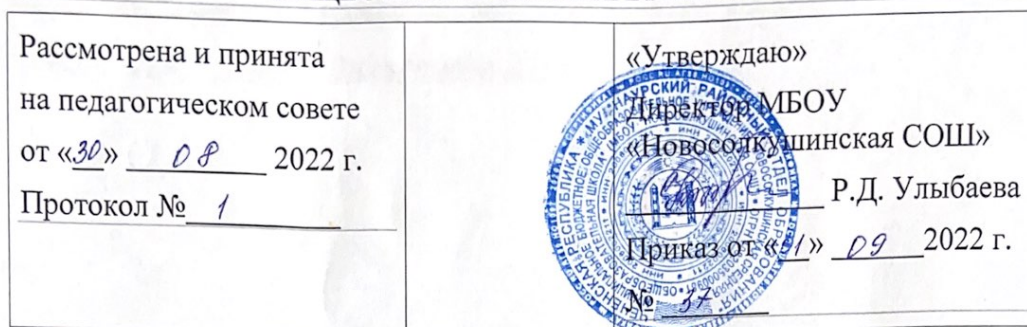 Рассмотрена и принята
на педагогическом совете
от «30» 08 2022 г.
Протокол № 1
«Утверждаю»
Директор МБОУ
«Новосолкушинская СОШ»
Р.Д. Улыбаева
Приказ от «1» 09 2022 г.
№ 37